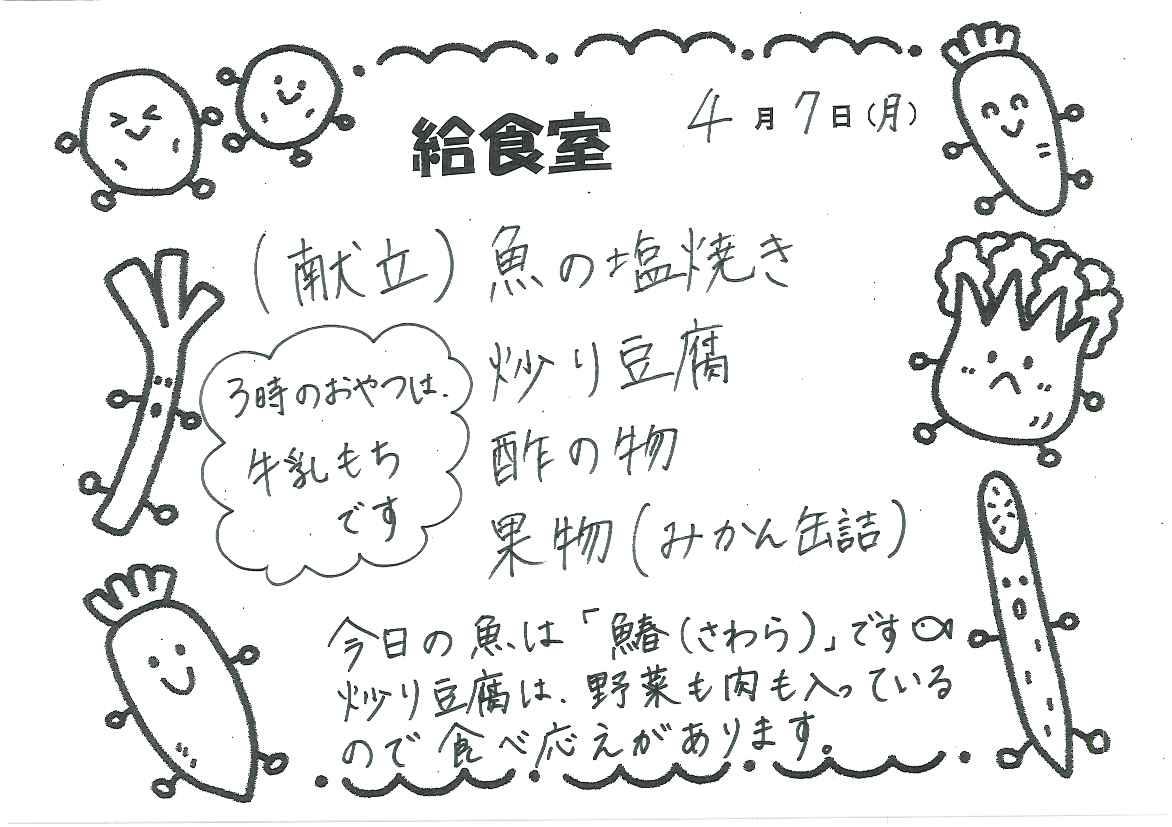 給食室
4月7日(月)
(献立)魚の塩焼き
炒り豆腐
酢の物
果物(みかん缶詰)
3時のおやつは、
牛乳もち
です
今日の魚は「鰆(さわら)」です
炒り豆腐は、野菜も肉も入っている
ので食べ応えがあります。